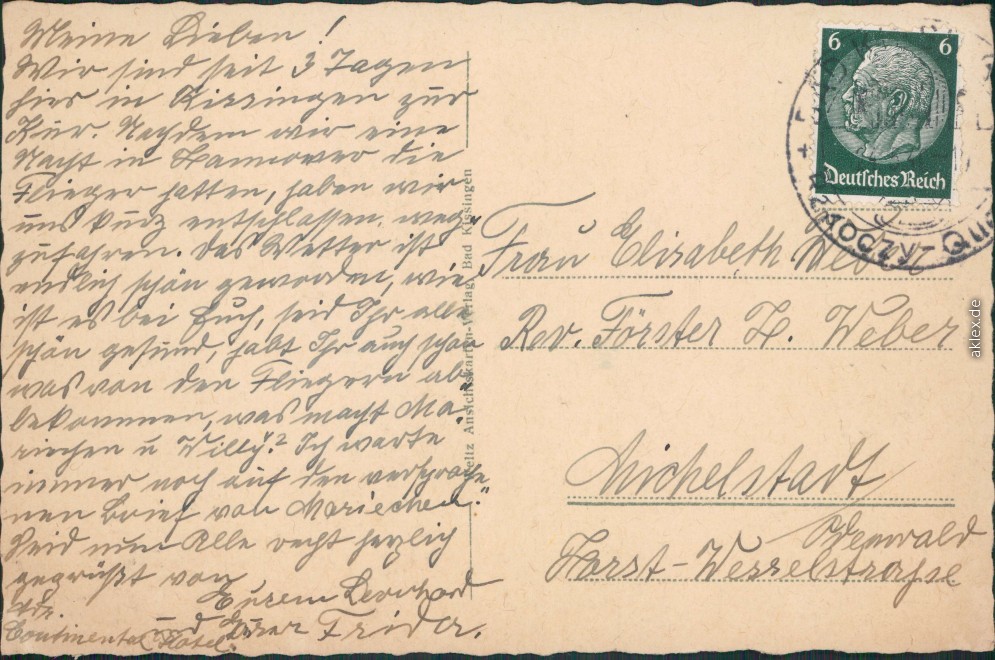 Meine Lieben!
Wir sind seit 3 Tagen
hier in Kissingen zur
Kur. Nachdem wir eine
Nacht in Hannover die
Flieger hatten, haben wir
uns kurz entschlossen, weg-
zufahren. Das Wetter ist
endlich schön geworden, wie
ist es bei Euch, seid Ihr alle
schön gesund, habt Ihr auch schon
was von den Fliegern ab-
bekommen, was macht Ma-
riechen u Willy? Ich warte
immer noch auf den versproche-
nen Brief von Mariechen."
Seid nun Alle recht herzlich
gegrüßt von
Eurem Leonhard
und Eurer Frieda.
Adr.
Continental Hotel.
Ansichtskarten-Verlag, Bad Kissingen
6 6
Deutsches Reich
Rakoczy-Que
Frau Elisabeth Weber
Rev. Förster H. Weber
Michelstadt
Odenwald
Horst-Wesselstraße
aklex.de